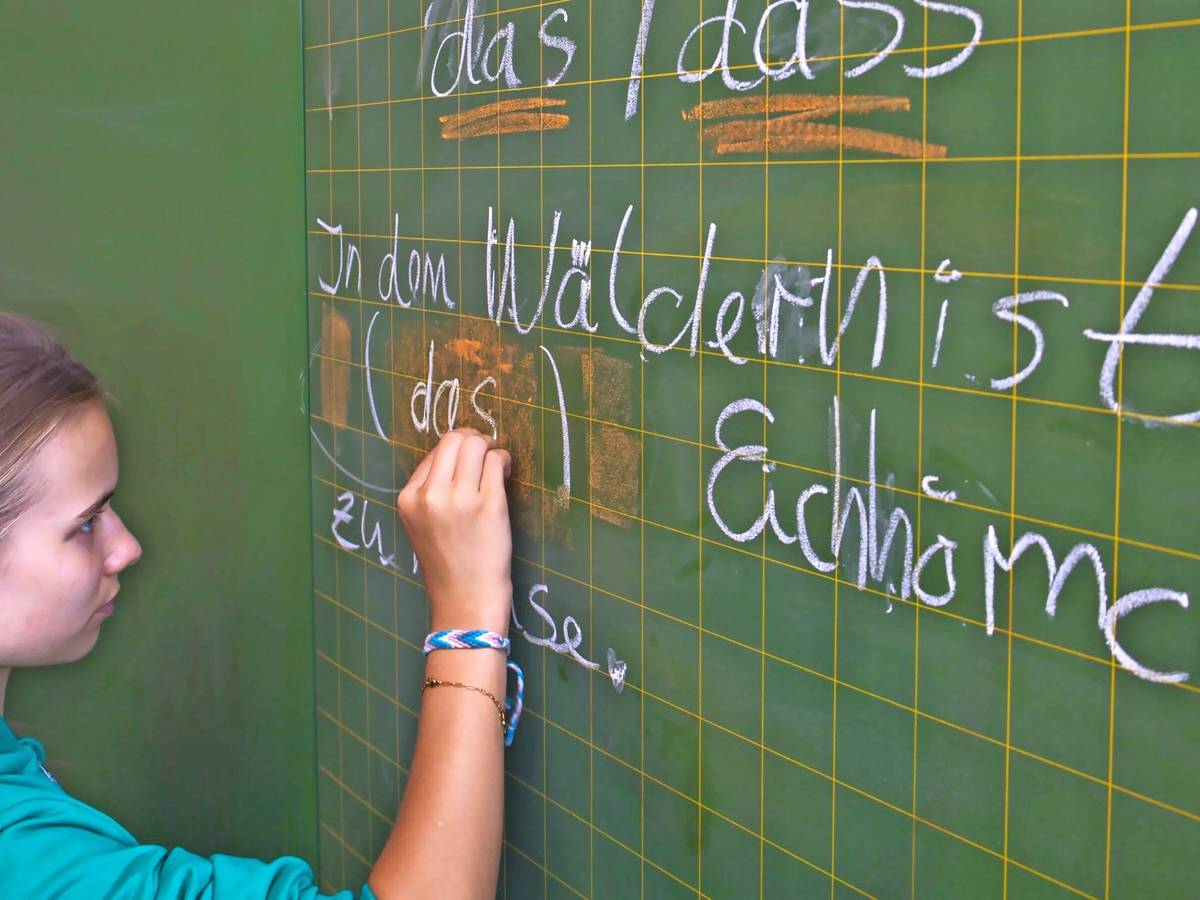 das / dass
In dem Wäldern ist
(das) Eichhörnc
zu